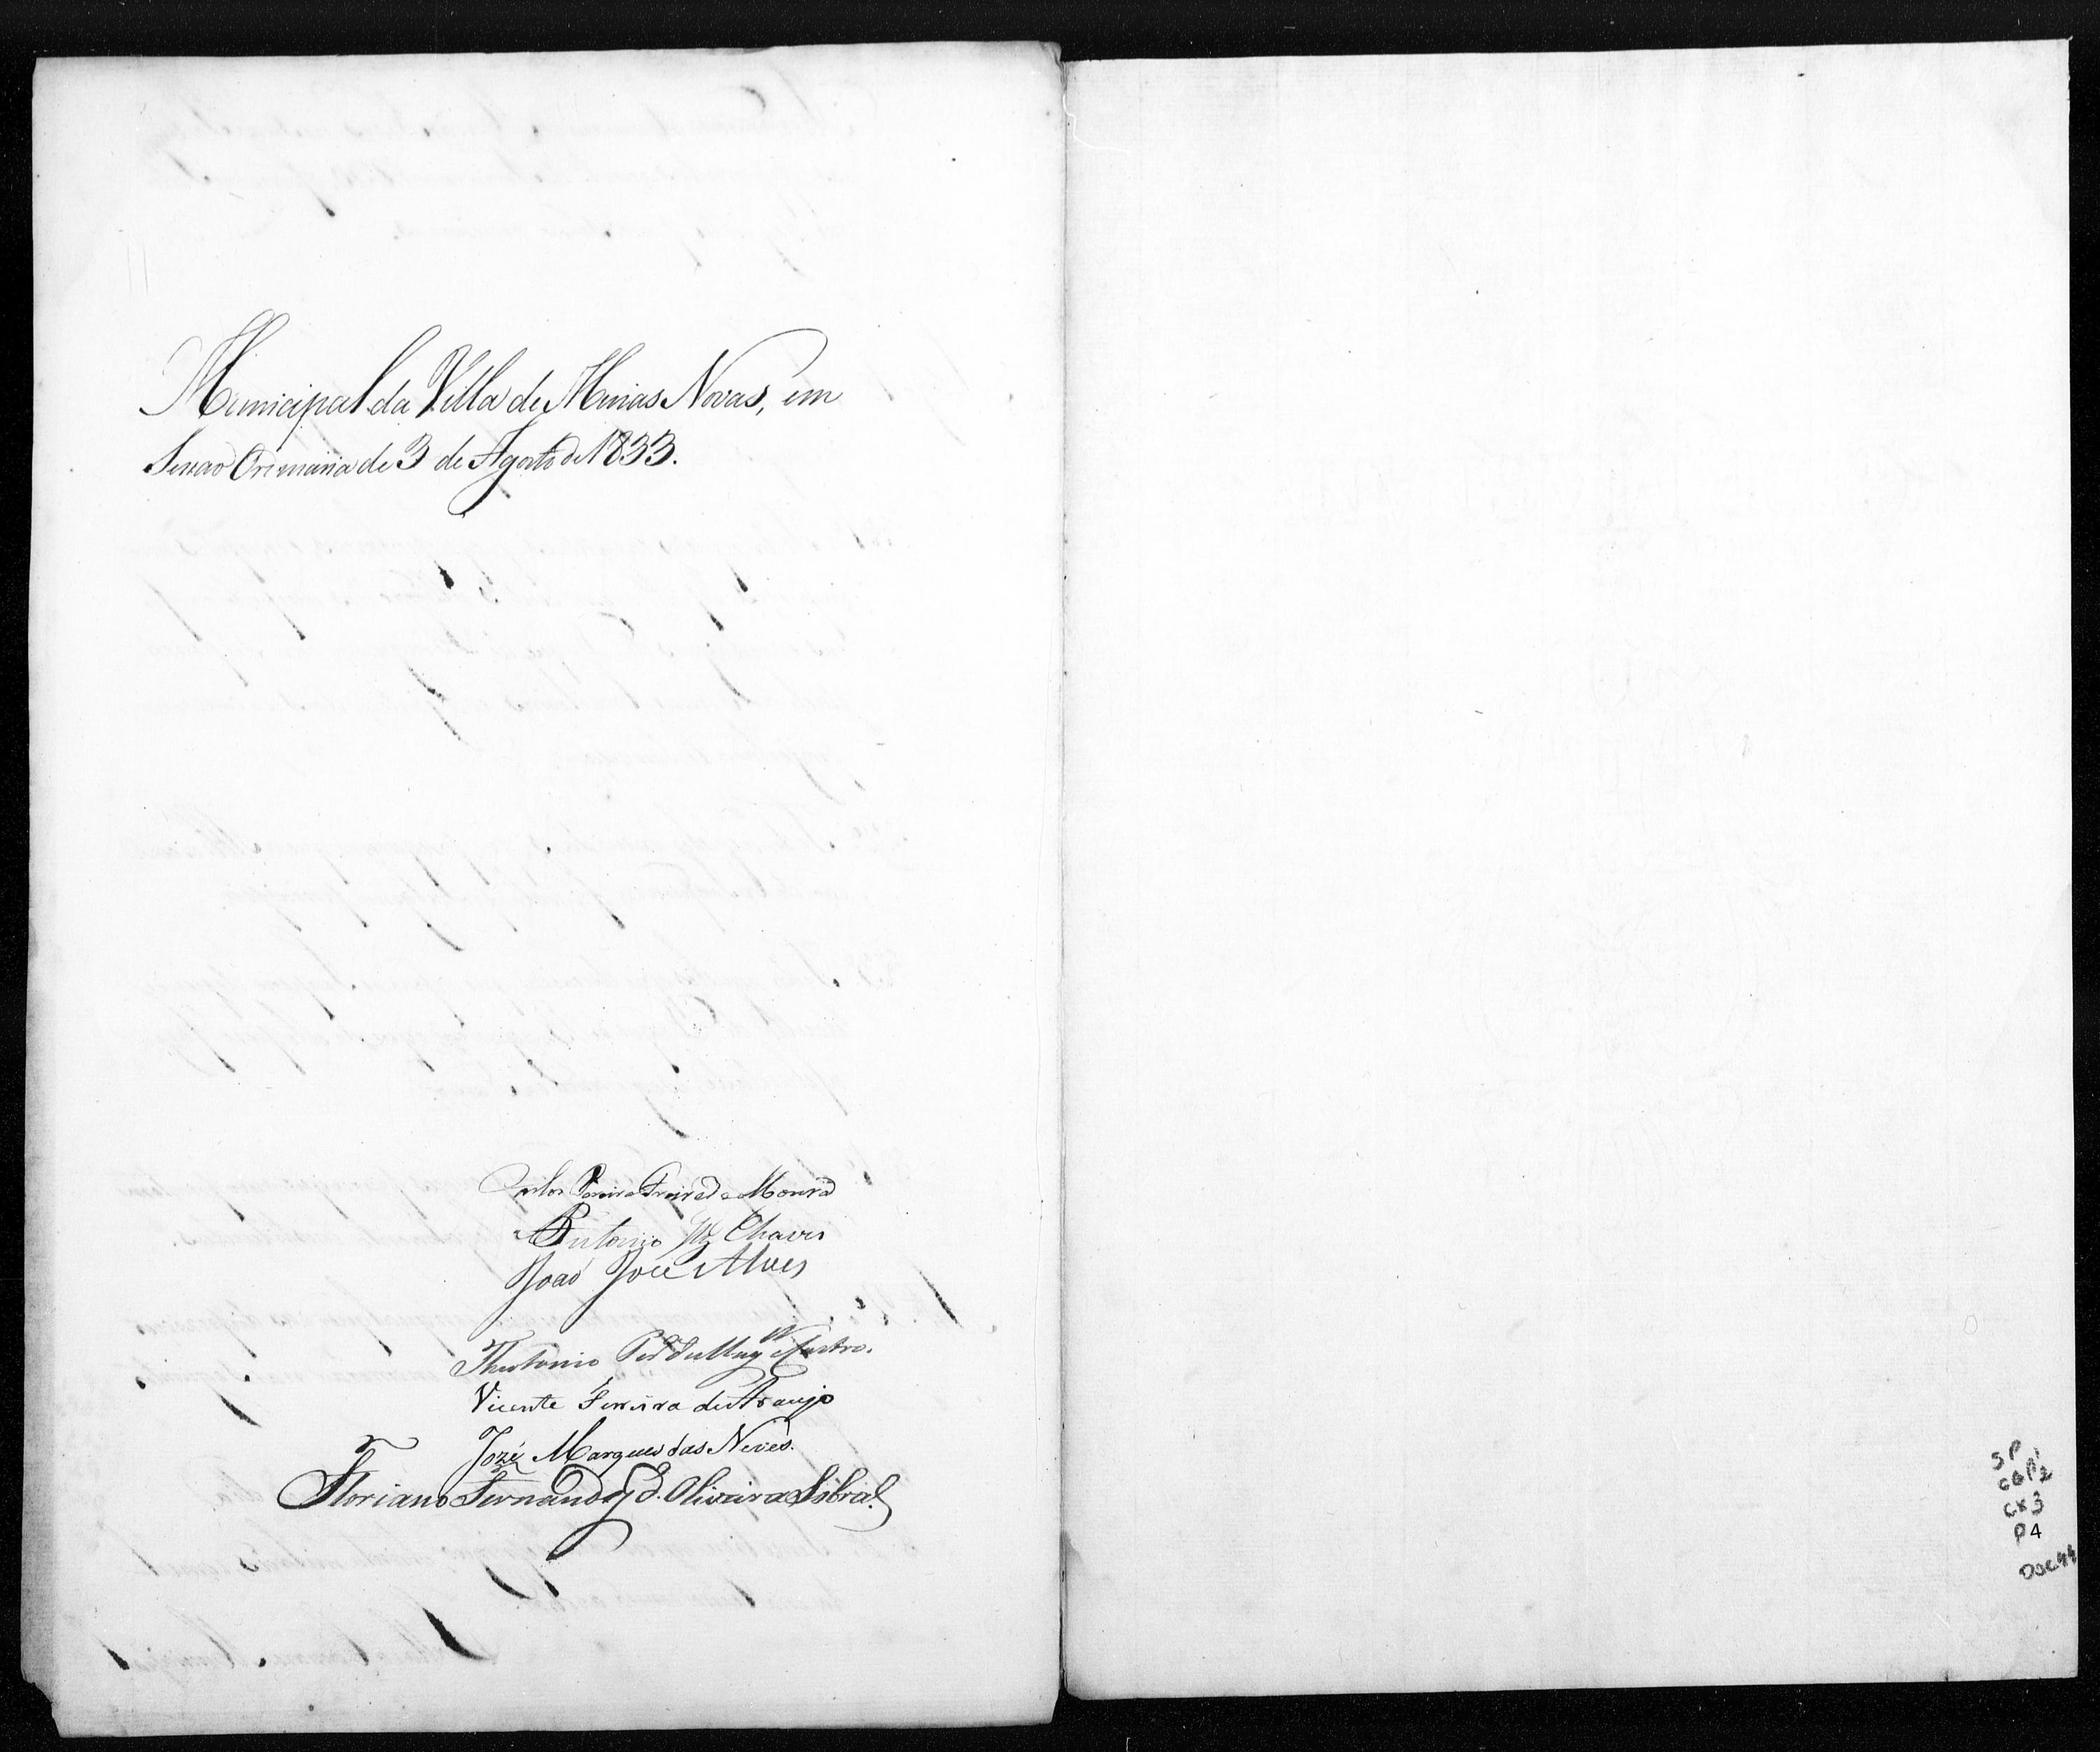 Municipal da Villa de Minas Novas, em
Sessaõ Ordinaria de 3 de Agosto de 1833.
Carlos Pereira Freire de Moura
Antonio Chaves
Joaõ Joze Alves
Theotonio de Mag e Castro.
Vicente Ferreira de Araujo
Jozé Marques das Neves.
Floriano Fernandes d. Oliveira Sibral
SP
CX 3
P4
DOC 44